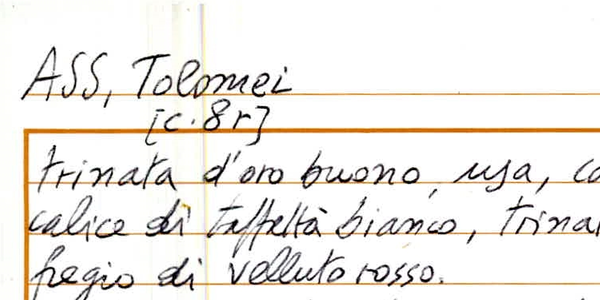 ASS, Tolomei
[c. 8r]
trinata d'oro buono, usa, co
calice di taffettà bianco, trina
fregio di velluto rosso.